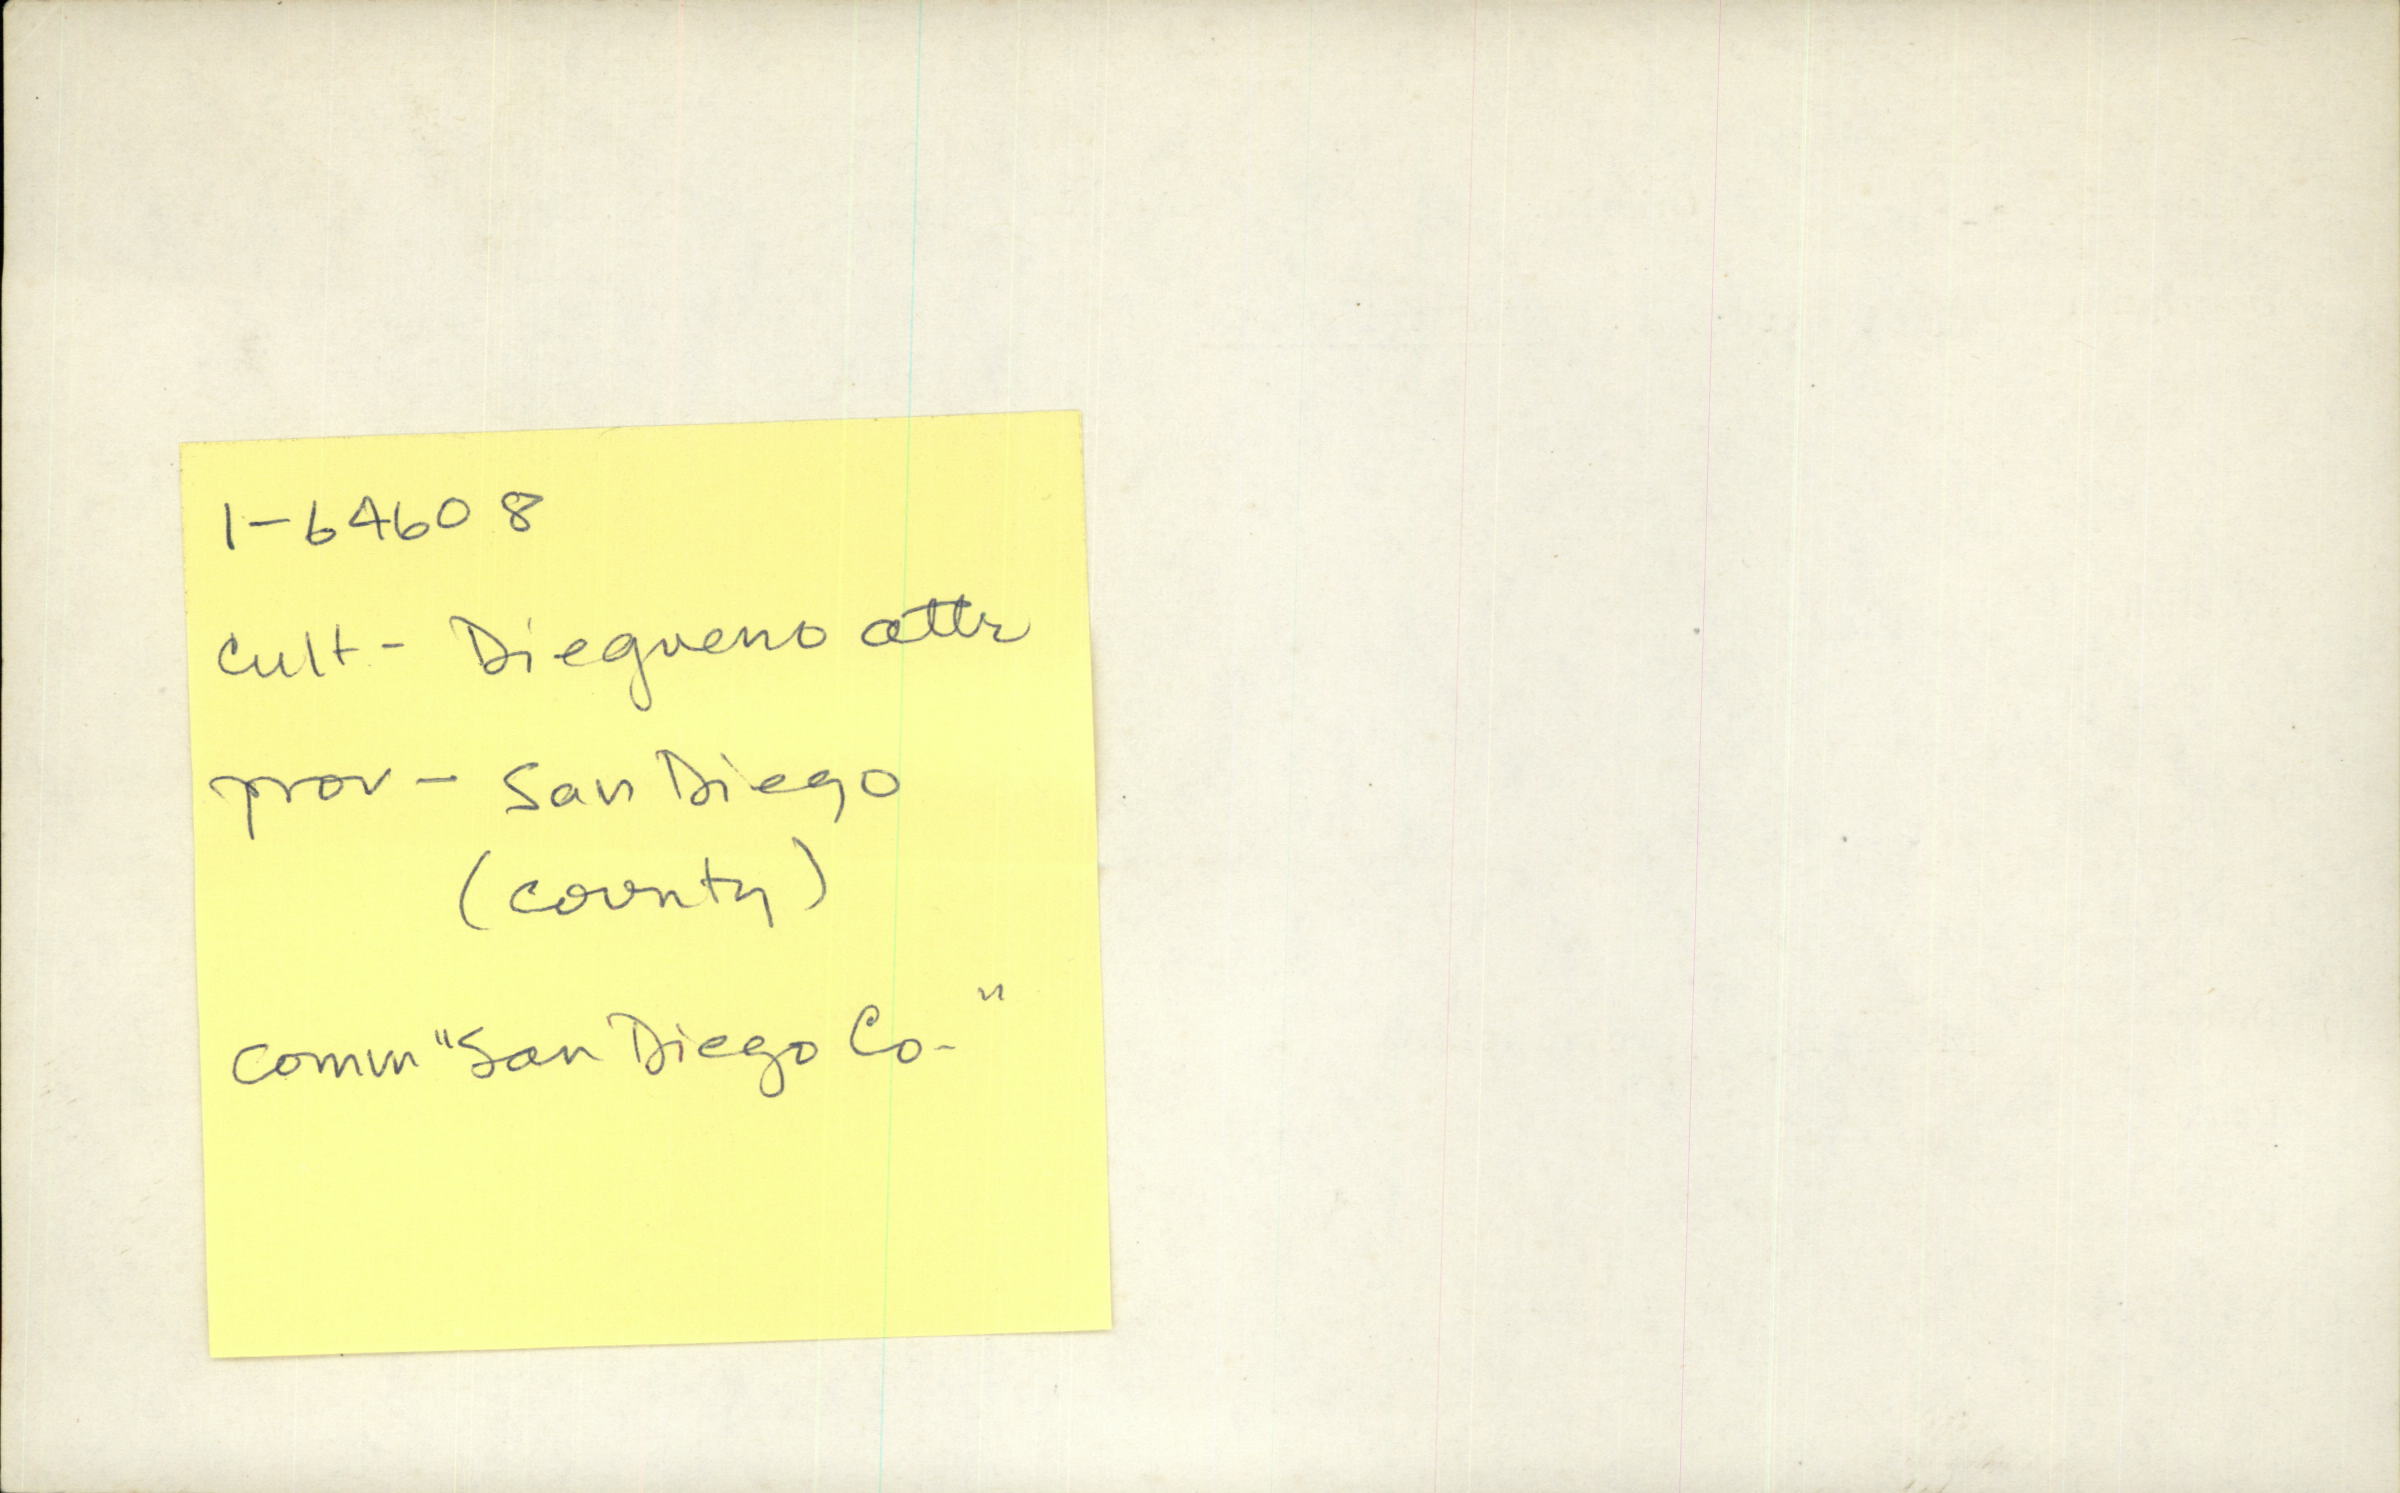 1-64608
cult- Diegueno attr
prov- San Diego
(county)
comm "San Diego Co."